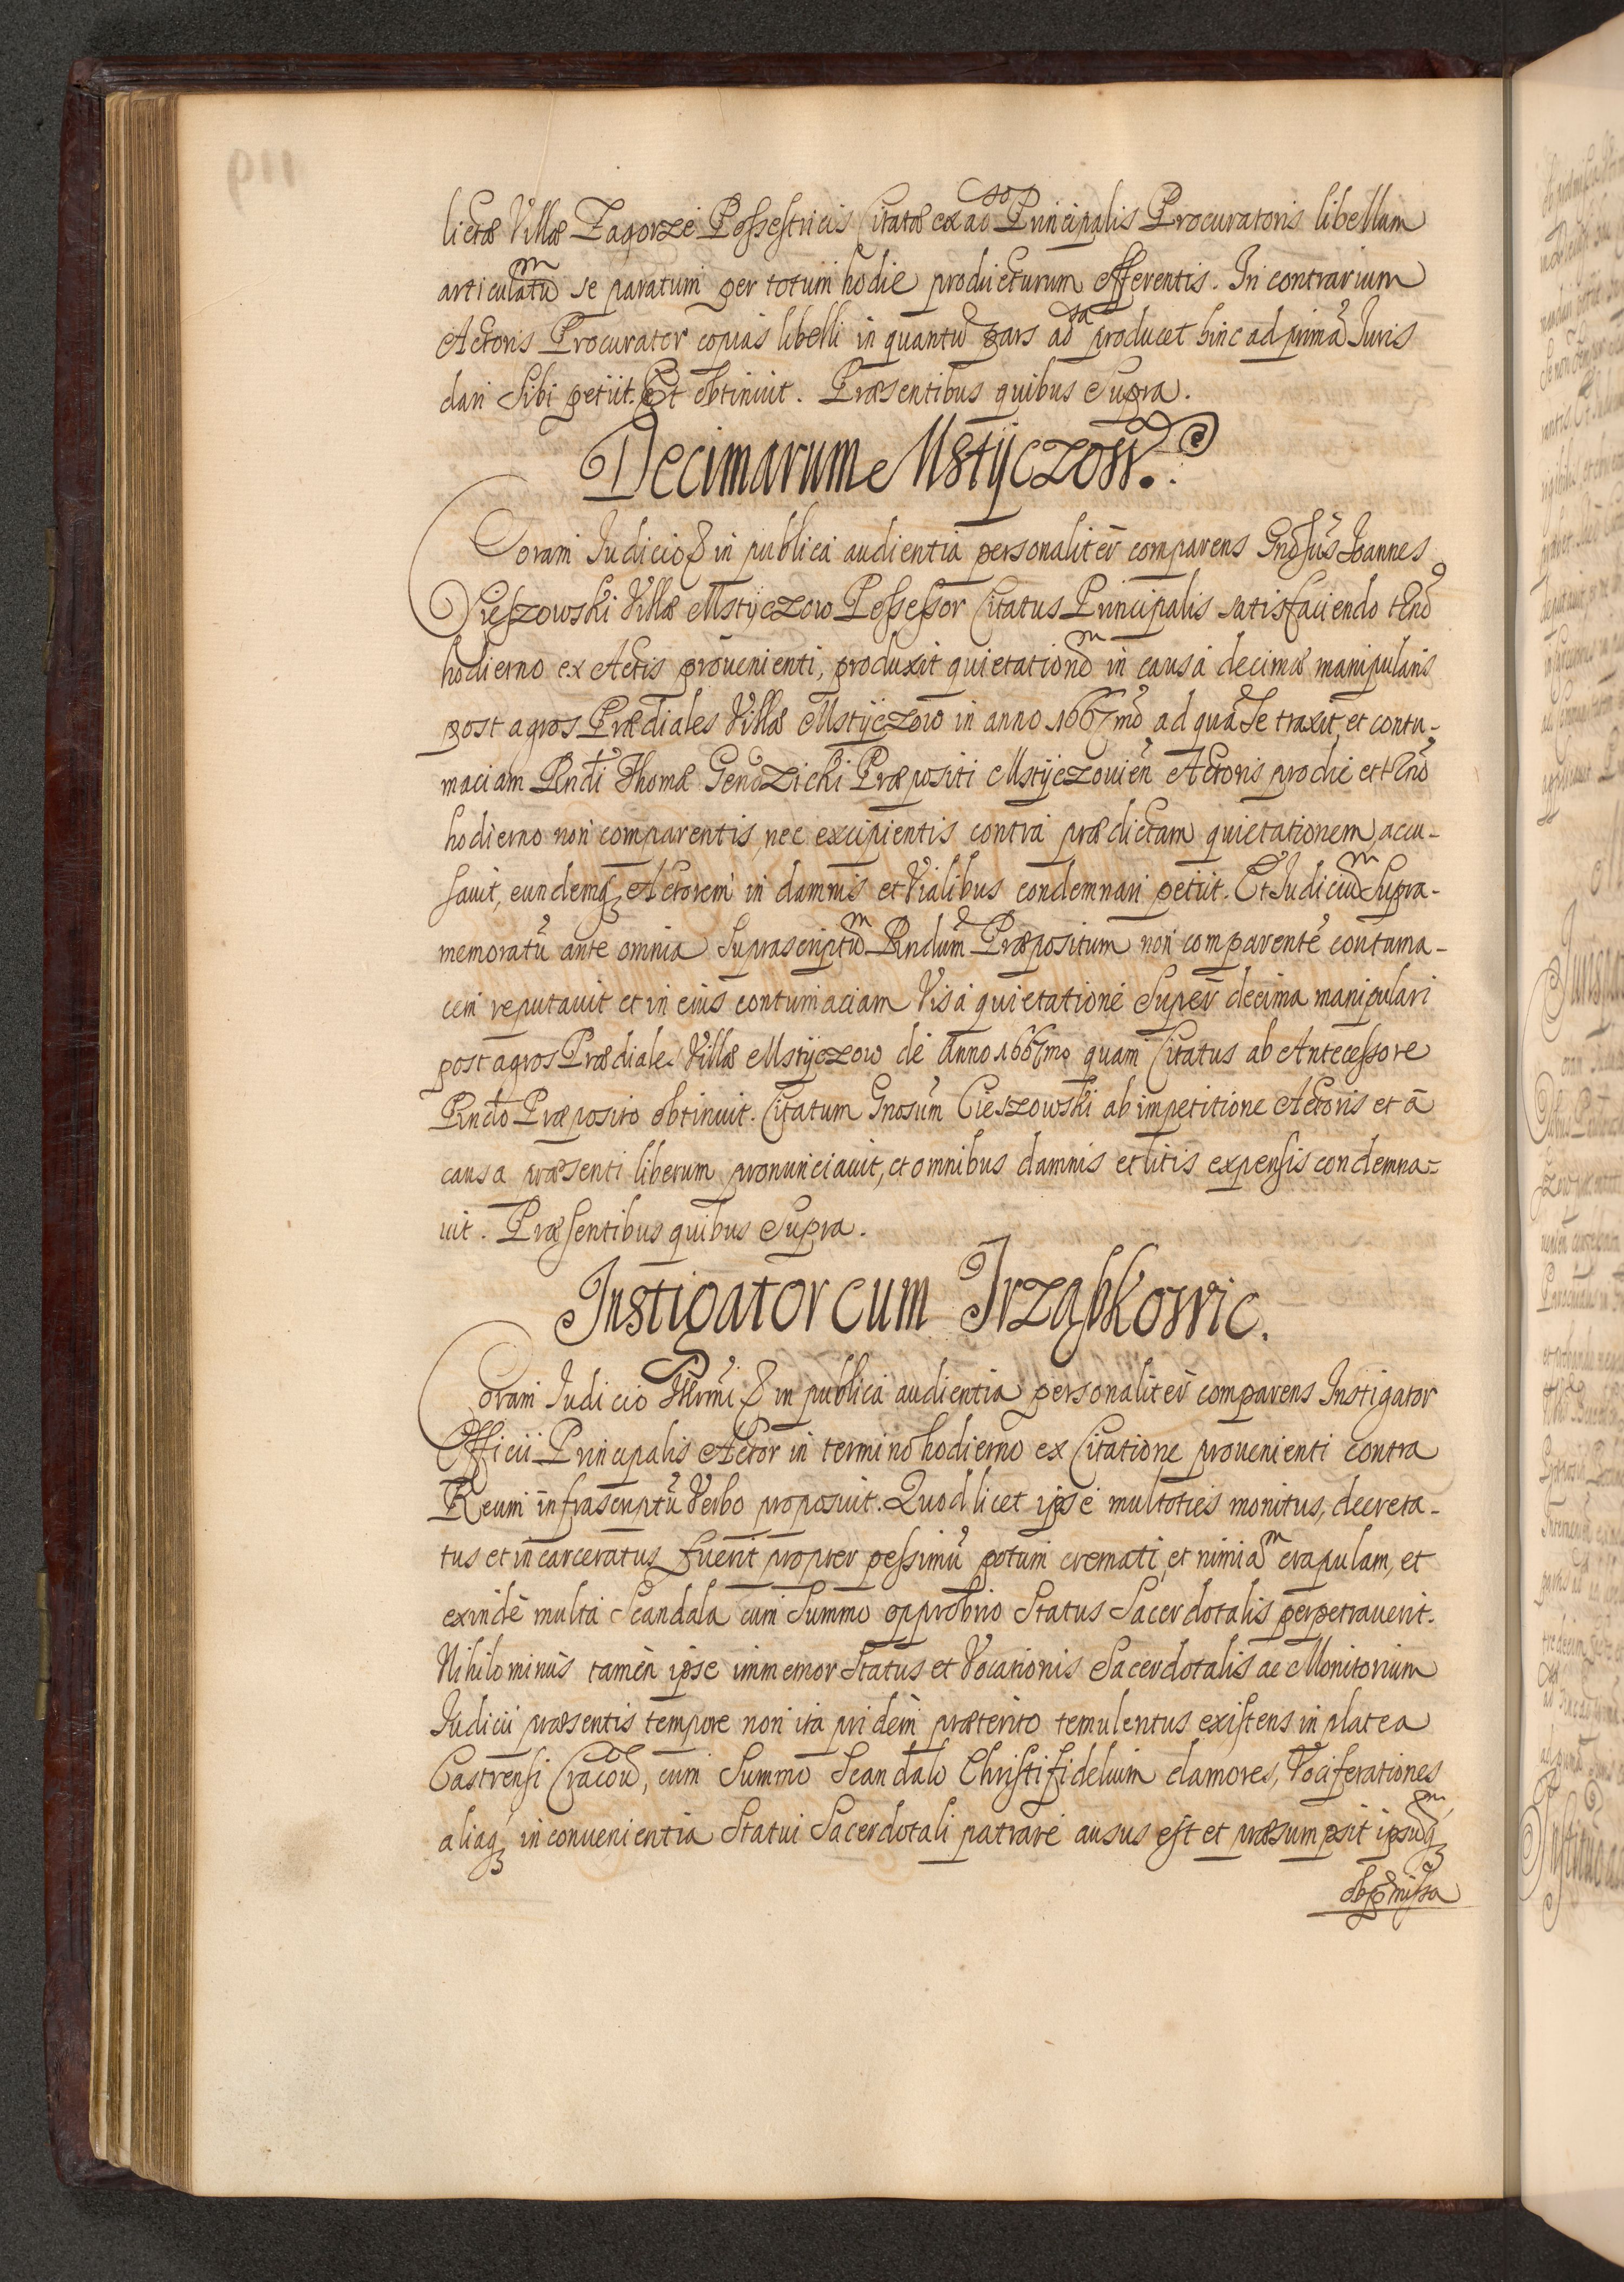 lictæ Villæ Zagorze Possestricis Citatæ ex ad.so Principalis Procuratoris libellum
articulatũm se paratum per totum hodie producturum offerentis. In contrarium
Actoris Procurator copias libelli in quantũ pars adsa producet hinc ad primã Iuris
dari Sibi petiit. Et obtinuit. Præsentibus quibus Supra.
Decimarum Mstÿczow.
Coram Iudicio & in publica audientia personaliter comparens Gnosus Ioannes
Cieszowski Villæ Mstÿczow Possessor Citatus Principalis satisfaciendo tẽno
hodierno ex Actis prouenienti, produxit quietationẽm in causa decimæ manipularis
post agros Prædiales Villæ Mstÿczow in anno 1667mo ad quã Se traxit, et contu-
maciam Rndi Thomæ Gendzicki Præpositi Mstÿczouien Actoris pro die et tẽno
hodierno non comparentis, nec excipientis contra prædictam quietationem, accu-
sauit, eundemq3 Actorem in damnis et Vialibus condemnari petiit. Et Iudiciũm Supra-
memoratũ ante omnia Suprascriptũm Rndum Præpositum non comparentẽ contuma-
cem reputauit et in eius contumaciam Visa quietatione Super decima manipulari
post agros Prædiales Villæ Mstÿczow de Anno 1667mo quam Citatus ab Antecessore
Rndo Præposito obtinuit. Citatum Gnosum Cieszowski ab impetitione Actoris et a
causa præsenti liberum pronunciauit, et omnibus damnis et litis expensis condemna-
uit. Præsentibus quibus Supra.
Instigator cum Jrząbkowic.
Coram Iudicio & in publica audientia personaliter comparens Instigator
Officii Principalis Actor in termino hodierno ex Citatione prouenienti contra
Reum infrascriptũ Verbo proposuit. Quod licet ipse multoties monitus, decreta-
tus et incarceratus fuerit propter pessimũ potum cremati, et nimiãm crapulam, et
exinde multa Scandala cum Summo opprobrio Status Sacerdotalis perpetrauerit.
Nihilominus tamen ipse immemor Status et Vocationis Sacerdotalis ac Monitorium
Iudicii præsentis tempore non ita pridem præterito temulentus existens in platea
Castrensi Cracou, cum Summo Scandalo Christifidelium clamores, Vociferationes
aliaq3 inconuenientia Statui Sacerdotali patrare ausus est et præsumpsit ipsũmq3
ob præmissa